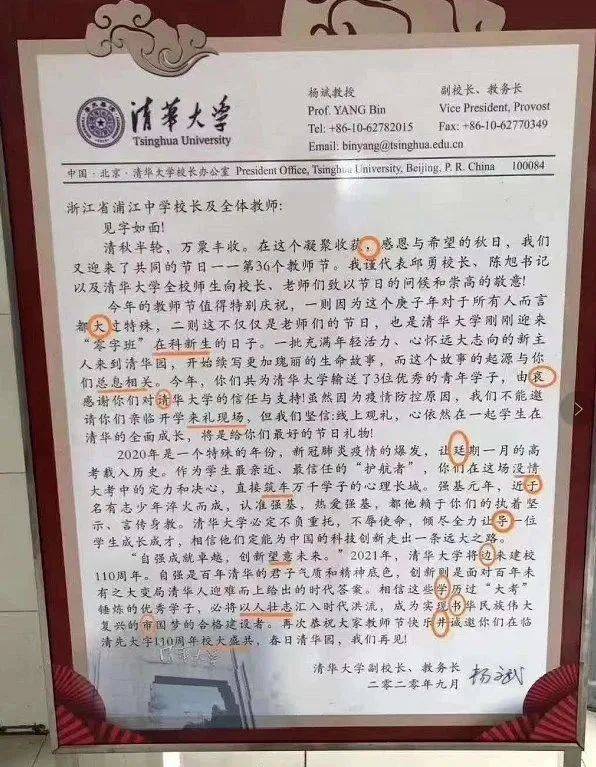 清华大学
Tsinghua University
杨斌教授
Prof. YANG Bin
Tel: +86-10-62782015
Email: binyang@tsinghua.edu.cn
副校长、教务长
Vice President, Provost
Fax: +86-10-62770349
中国·北京·清华大学校长办公室 President Office, Tsinghua University, Beijing, P. R. China 100084
浙江省浦江中学校长及全体教师:
见字如面!
清秋半轮，万粟丰收。在这个凝聚收获，感恩与希望的秋日，我们
又迎来了共同的节日一一第36个教师节。我谨代表邱勇校长、陈旭书记
以及清华大学全校师生向校长、老师们致以节日的问候和崇高的敬意!
今年的教师节值得特别庆祝，一则因为这个庚子年对于所有人而言
都大过特殊，二则这不仅仅是老师们的节日，也是清华大学刚刚迎来
“零字班”在科新生的日子。一批充满年轻活力、心怀远大志向的新主
人来到清华园，开始续写更加瑰丽的生命故事，而这个故事的起源与你
们总息相关。今年，你们共为清华输送了3位优秀的青年学子，由哀
感谢你们对请华大学的信任与支持!虽然因为疫情防控原因，我们不能邀
请你们亲临开学来礼现场，但我们坚信:线上观礼，心依然在一起学生在
清华的全面成长，将是给你们最好的节日礼物!
2020年是一个特殊的年份，新冠肺炎疫情的爆发，让廷期一月的高
考载入历史。作为学生最亲近、最信任的“护航者”，你们在这场没情
大考中的定力和决心，直接筑车万千学子的心理长城。强基元年，近子
名有志少年淬火而成，认准强基，热爱强基，都他赖于你们的执着坚
示、言传身教。清华大学必定不负重托，不辱使命，倾尽全力让导一位
学生成长成才，相信他们定能为中国的科技创新走出一条远大之路。
“自强成就卓越，创新望意未来。”2021年，清华大学将边来建校
110周年。自强是百年清华的君子气质和精神底色，创新则是面对百年未
有之大变局清华人迎难而上给出的时代答案。相信这些学历过“大考”
锤炼的优秀学子，必将以人壮志汇入时代洪流，成为实现书华民族伟大
复兴的帝国梦的合格建设者。再次恭祝大家教师节快乐井诚邀你们在临
清先大字110周年校大盛共，春日清华园，我们再见!
清华大学副校长、教务长
二零二零年九月
杨斌